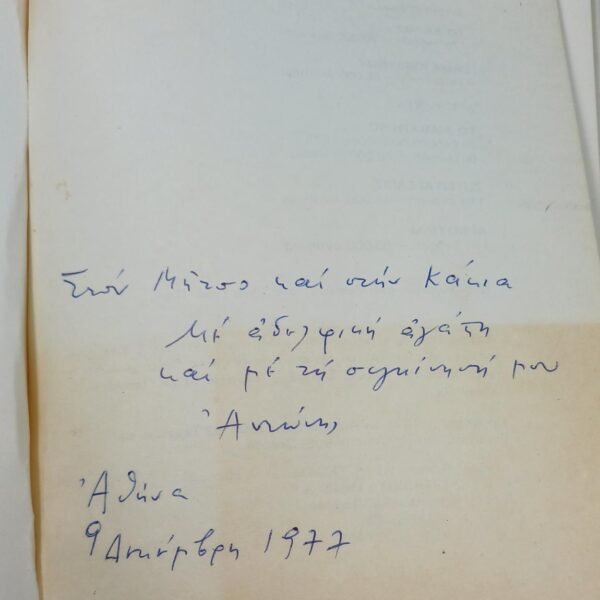 Στόν Μῆτσο καί στήν Κάκια
Μέ ἀδελφική ἀγάπη
καί μέ τή συγκίνησή μου
Ἀντώνης
Ἀθήνα
9 Δεκέμβρη 1977